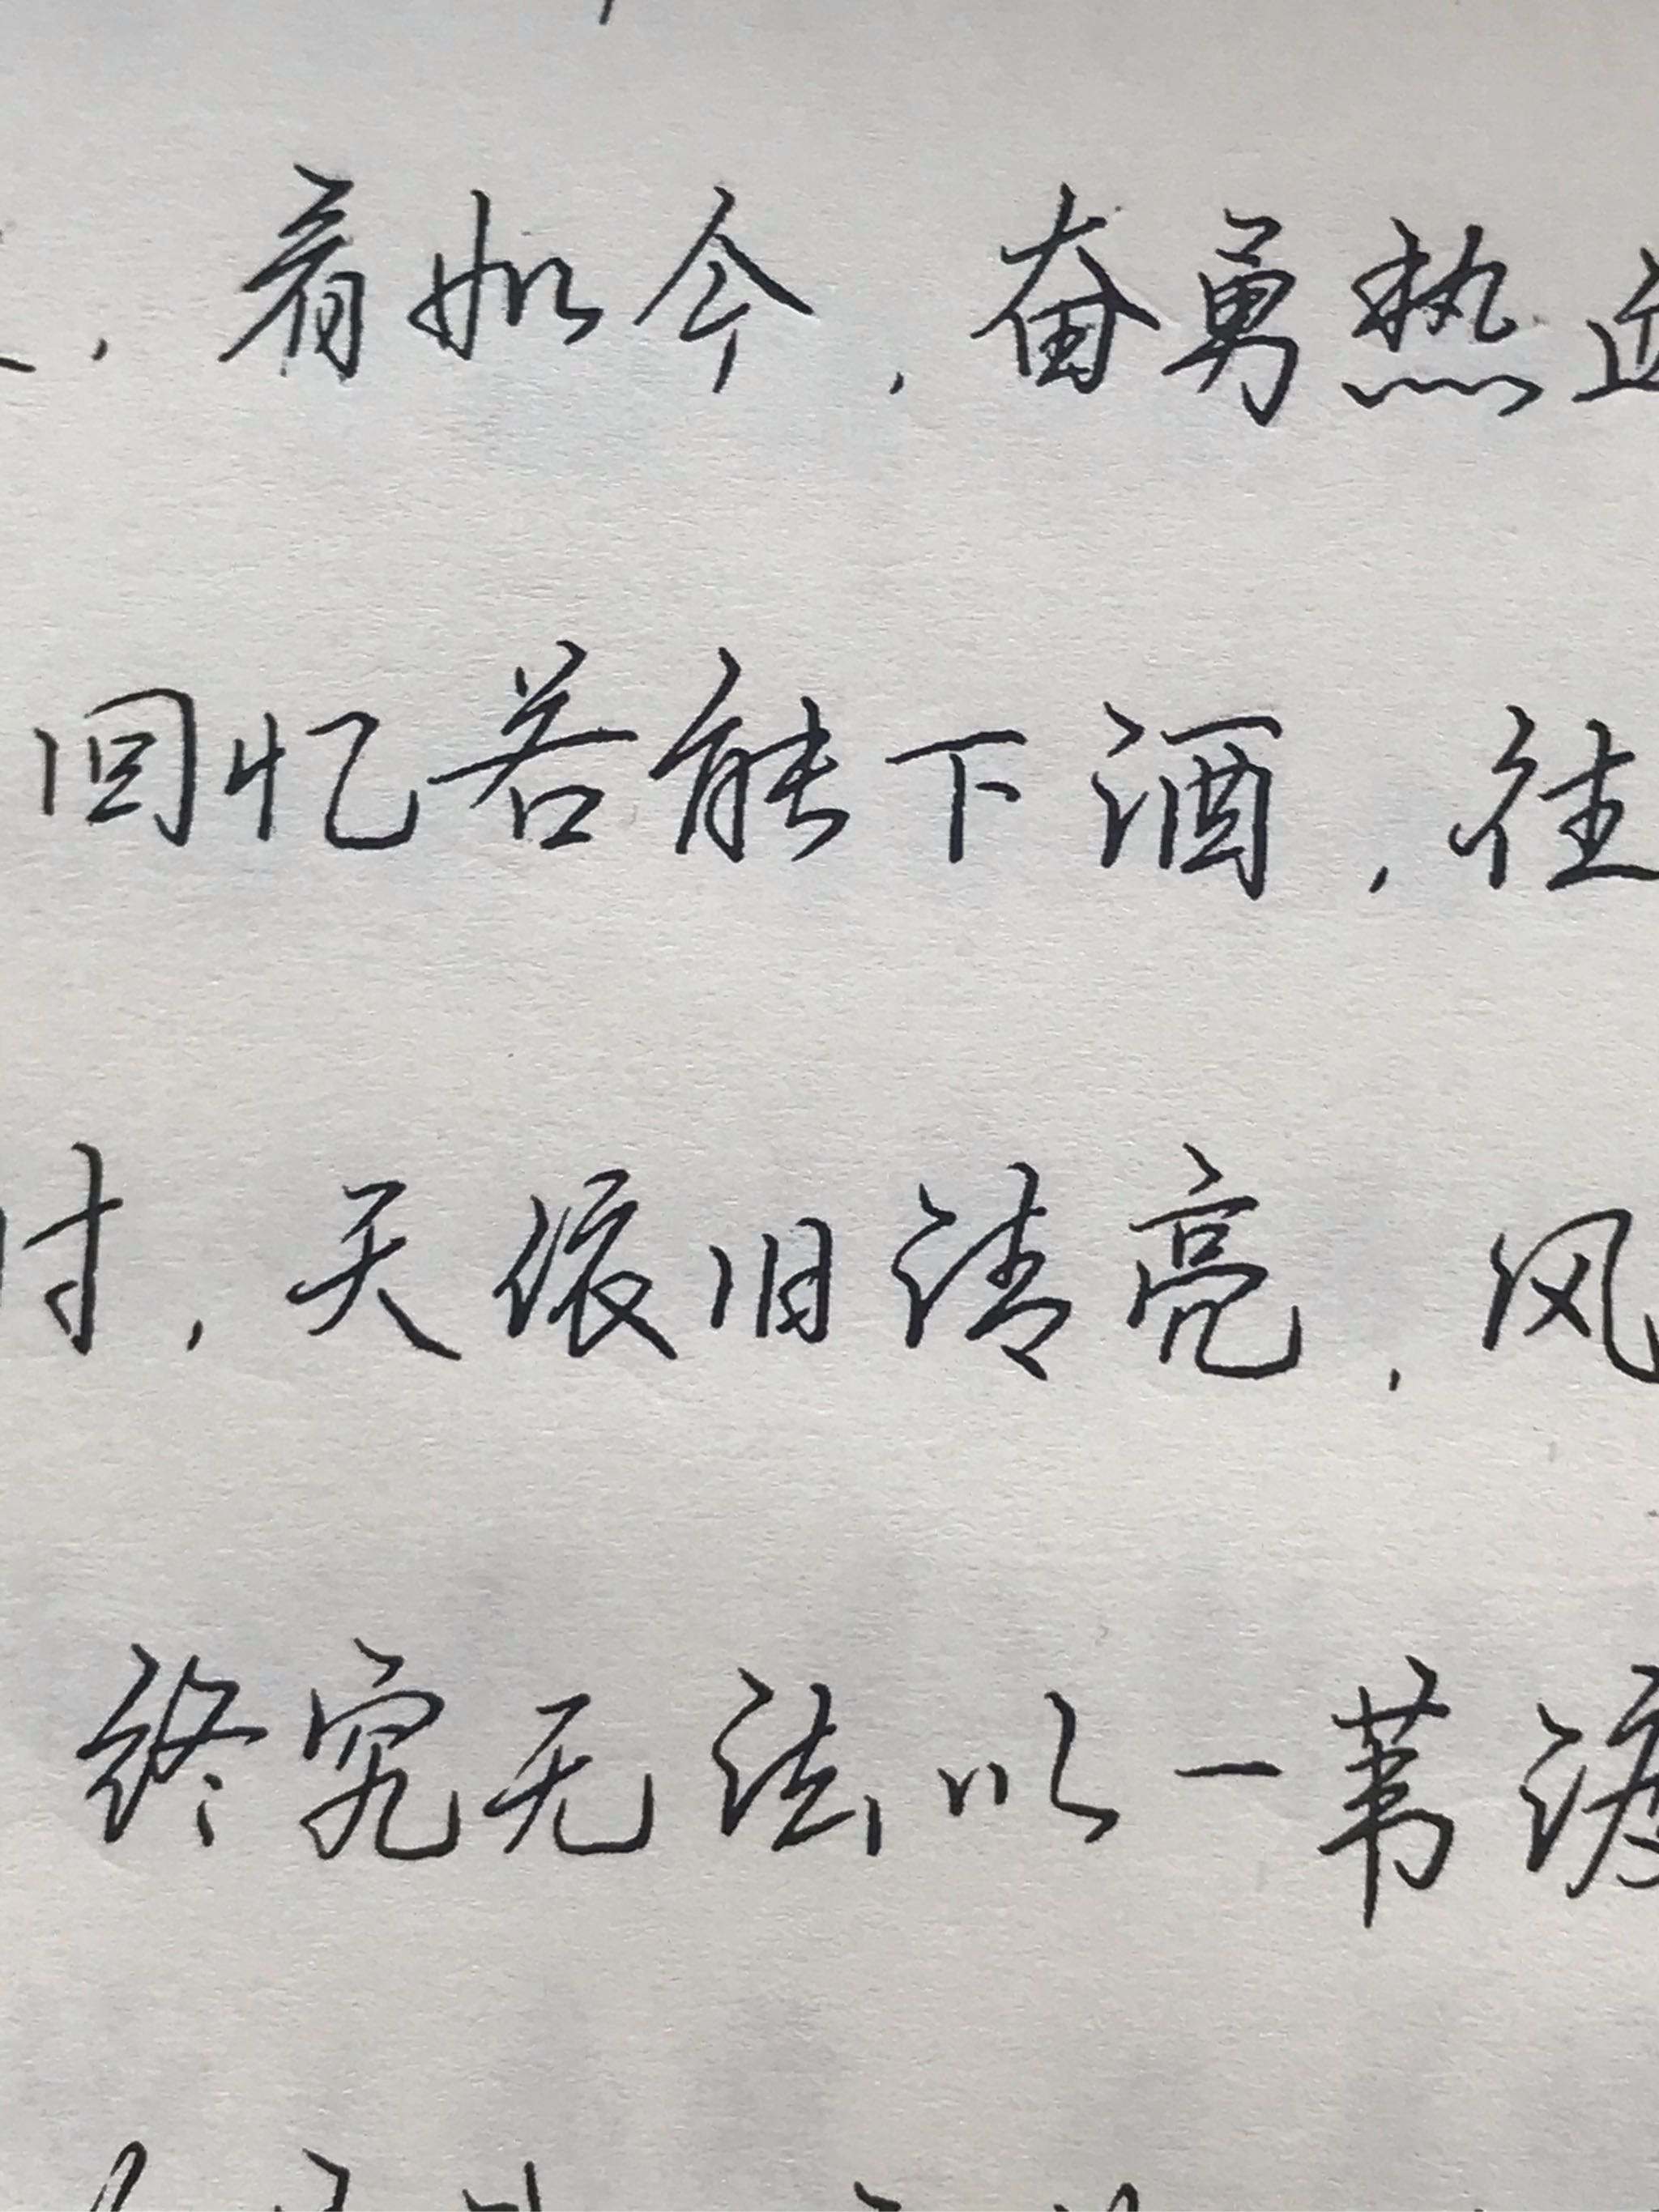 ，着如今，奋勇热
回忆若能下酒，往
时，天依旧清亮，风
终究无法以一苇渡